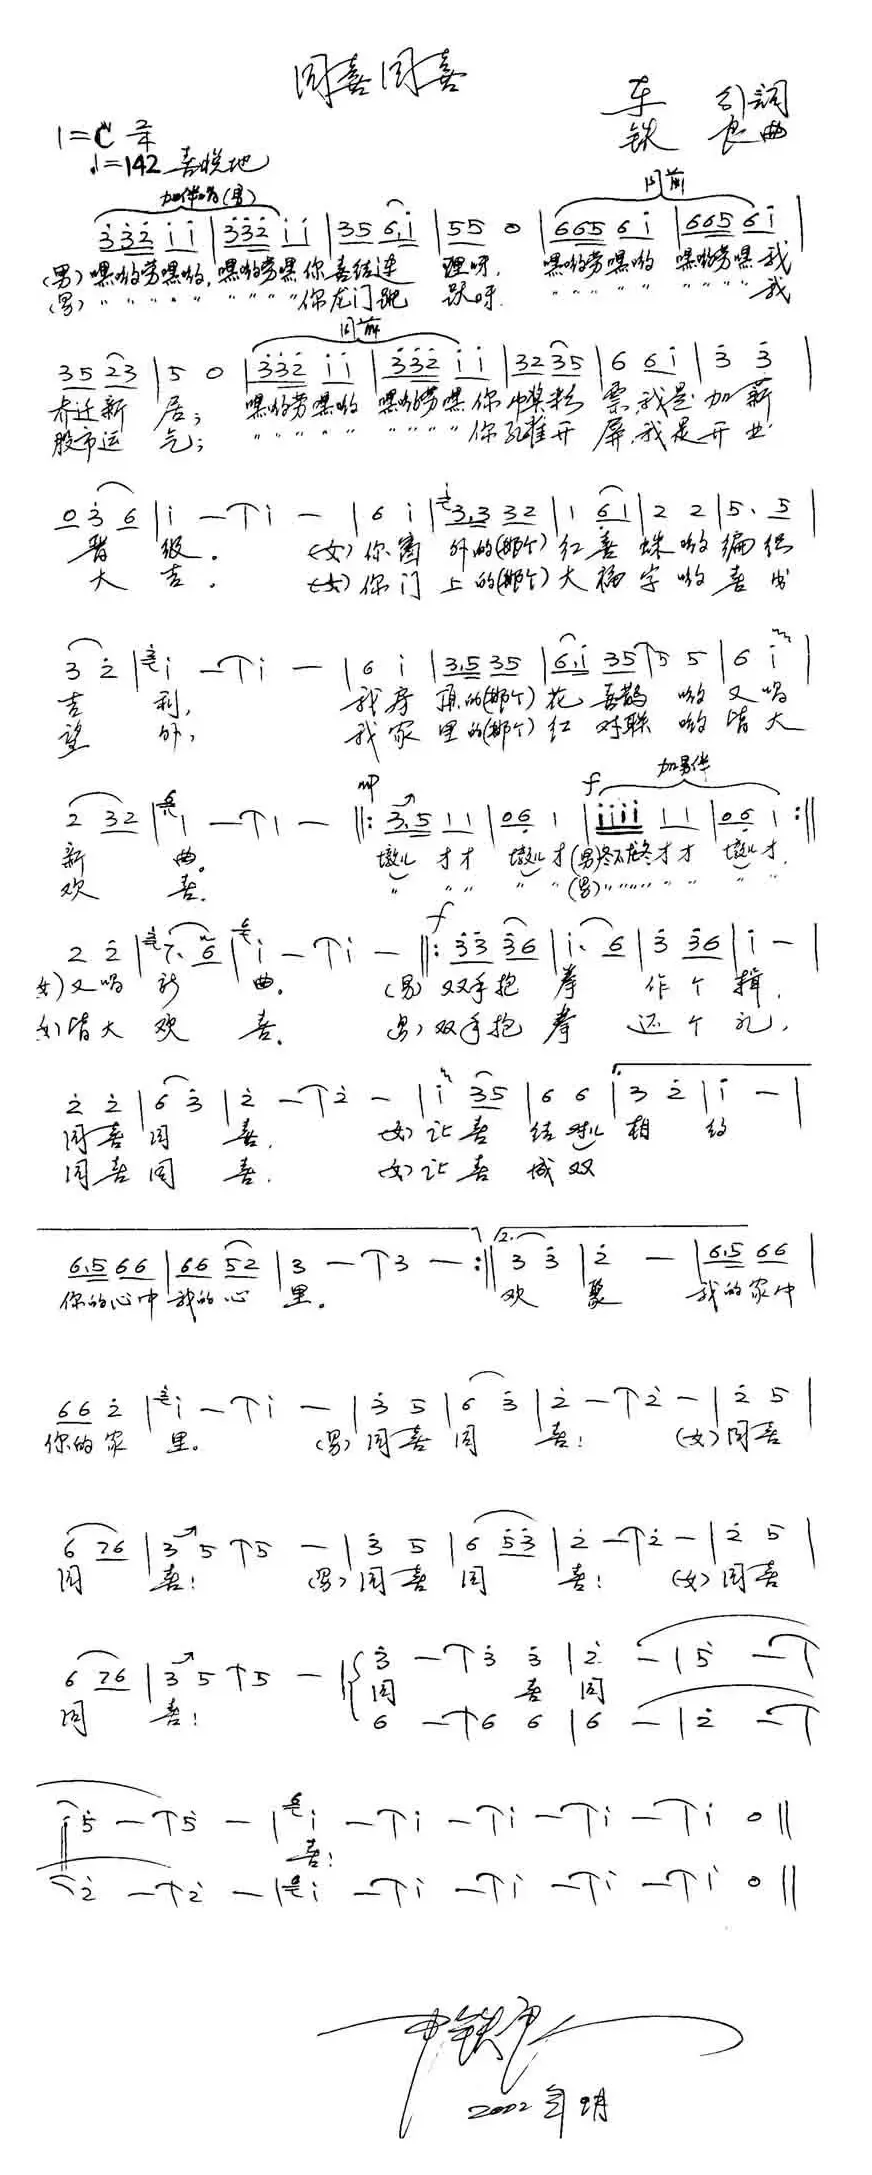 同喜同喜
车 引詞
铁 良曲
1=C 2/4
♩=142 喜悦地
加伴唱(男)
同前
3̇3̇2̇ i i | 3̇3̇2̇ i i | 35 6.i | 55 0 | 665 6 i | 665 6 i |
(男)嘿哟劳嘿哟,嘿哟劳嘿你喜结连 理呀, 嘿哟劳嘿哟 嘿哟劳嘿我
(男)〃〃〃〃〃 〃〃〃〃你龙门跳 跃呀. 〃〃〃〃〃 〃〃〃〃我
同前
35 23 | 5 0 | 3̇3̇2̇ i i | 3̇3̇2̇ i i | 32 35 | 6 6i | 3̇ 3̇ |
乔迁新 居; 嘿哟劳嘿哟 嘿哟劳嘿你中奖彩 票,我是 加薪
股市运 气; 〃〃〃〃〃 〃〃〃〃你孔雀开 屏,我是开业
0 3̇ 6 | i — | i — | 6 i | 3.3 32 | 1 6 1 | 2 2 | 5. 5 |
晋 级. (女)你窗 外的(那个)红喜 蛛哟编织
大 吉. (女)你门 上的(那个)大福 字哟喜出
3 2̇ | i — | i — | 6 i | 3.5 35 | 6.i 35 | 5 5 | 6 i |
吉 利, 我房 顶的(那个)花 喜鹊 哟 又唱
望 外; 我家 里的(那个)红 对联 哟 皆大
加男伴
mp f
2 32 | 1 — | 1 — ‖: 3.5 11 | 06 1 | iiii 11 | 06 1 :‖
新 曲。 墩儿 才才 墩儿才 (男)冬不龙冬才才 墩儿才.
欢 喜. 〃 〃〃 〃 〃 (男)〃〃〃〃〃〃 〃 〃
f
2 2̇ | 7. 6 | i — | i — ‖: 3̇3̇ 3̇6 | i. 6 | 3̇ 3̇6 | i — |
女)又唱 新 曲. (男)双手抱 拳 作个 揖,
女)皆大 欢 喜. (男)双手抱 拳 还个 礼,
2̇ 2̇ | 6 3̇ | 2̇ — | 2̇ — | i 35 | 6 6 | 3 2̇ | i — |
同喜同 喜. (女)让喜 结对儿 相 约
同喜同 喜. (女)让喜 成双
6.5 66 | 66 52 | 3 — | 3 — :‖ 2. 3 3̇ | 2̇ — | 6.5 66 |
你的心中 我的心 里。 欢 聚 我的家中
66 2̇ | i — | i — | 3̇ 5 | 6 3̇ | 2̇ — | 2̇ — | 2̇ 5 |
你的家 里。 (男)同喜同 喜! (女)同喜
6 76 | 3 5 | 5 — | 3̇ 5 | 6 5̇3̇ | 2̇ — | 2̇ — | 2̇ 5 |
同 喜! (男)同喜 同 喜! (女)同喜
6 76 | 3 5 | 5 — | 3̇ — | 3̇ 3̇ | 2̇ — | 5̇ — |
同 喜! 同 喜 同
6 — | 6 6 | 6 — | 2̇ — |
5̇ — | 5̇ — | i — | i — | i — | i — | i 0 ‖
喜!
2̇ — | 2̇ — | i — | i — | i — | i — | i 0 ‖
尹铁良
2002年9月